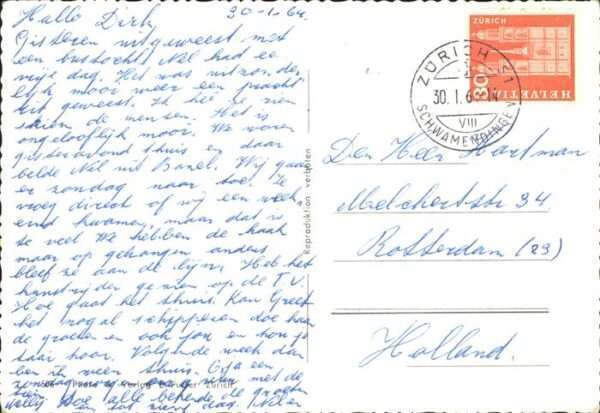 Hallo Dirk, 30-1-64.
Gisteren uitgeweest met
een bustocht. Nel had een
vrije dag. Het was uitzonder
lijk mooi weer een pracht
rit geweest. Ik heb ze zien
skien de mensen. Het is
ongelooflijk mooi. We waren
gisteravond thuis en daar
belde Nel uit Basel. Wij gaan
er zondag naar toe. Ze
vroeg direct of wij een week
end kwamen, maar dat is
te veel We hebben de haak
maar op gehangen anders
bleef ze aan de lijn. Heb het
kunstrijden gezien op de T.V.
Hoe gaat het thuis. Kan Greet
het nogal schipperen doe haar
de groeten en ook Jan en
haar hoor. Volgende week dan
ben ik weer thuis.
zondag
Willy Doe alle bekende de groeten
en tot
ZÜRICH
HELVETIA
30
ZÜRICH 51
30. 1. 6
VIII
SCHWAMENDINGEN
Reproduktion verboten
Den Heer Hartman
Melchertstr 34
Rotterdam (23)
Holland.
Photo u. Verlag Zürich